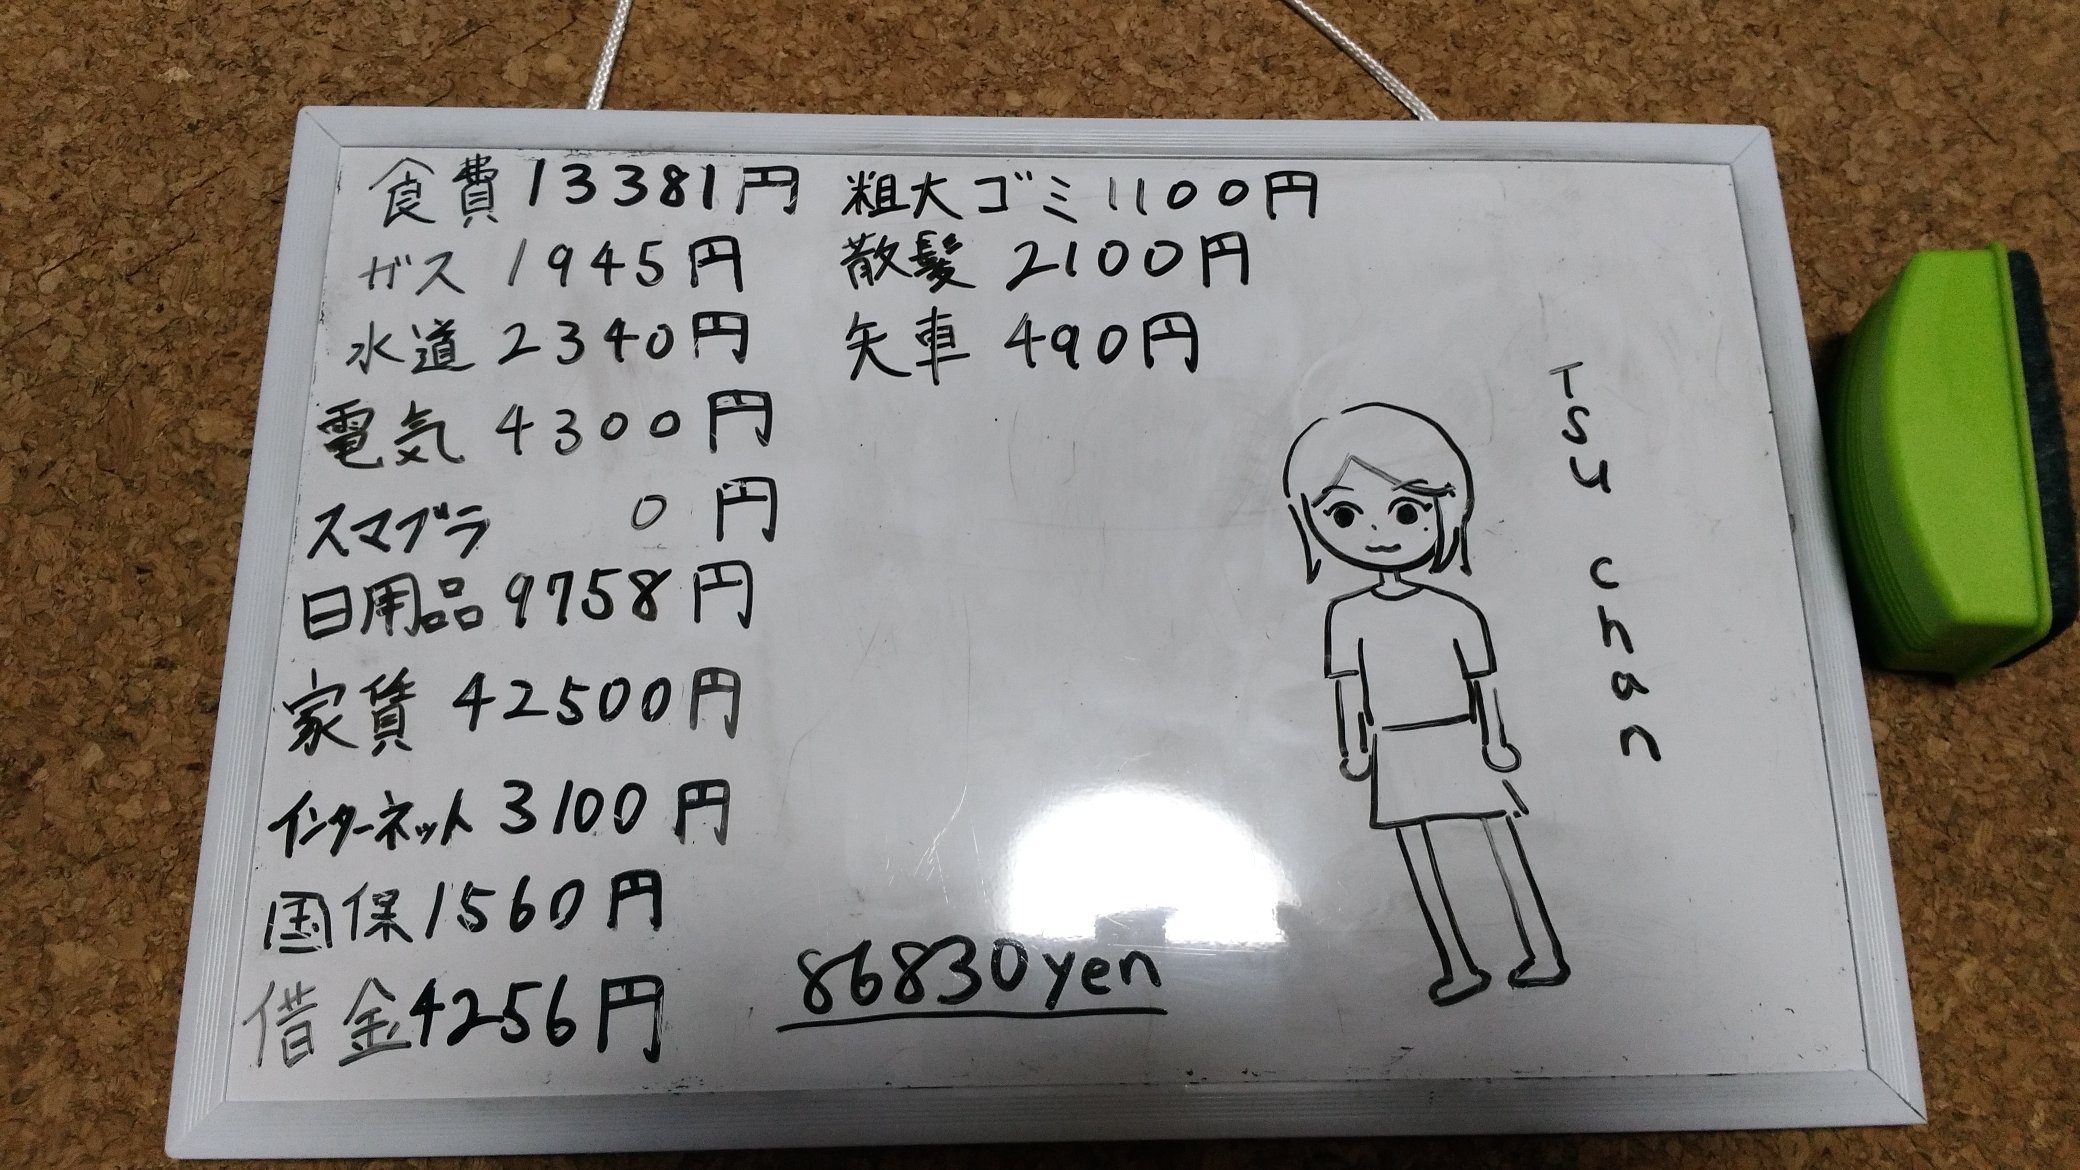 食費 13381円
ガス 1945円
水道 2340円
電気 4300円
スマブラ 0円
日用品 9758円
家賃 42500円
インターネット 3100円
国保 1560円
借金 4256円
粗大ゴミ 1100円
散髪 2100円
矢車 490円
86830yen
Tsu chan